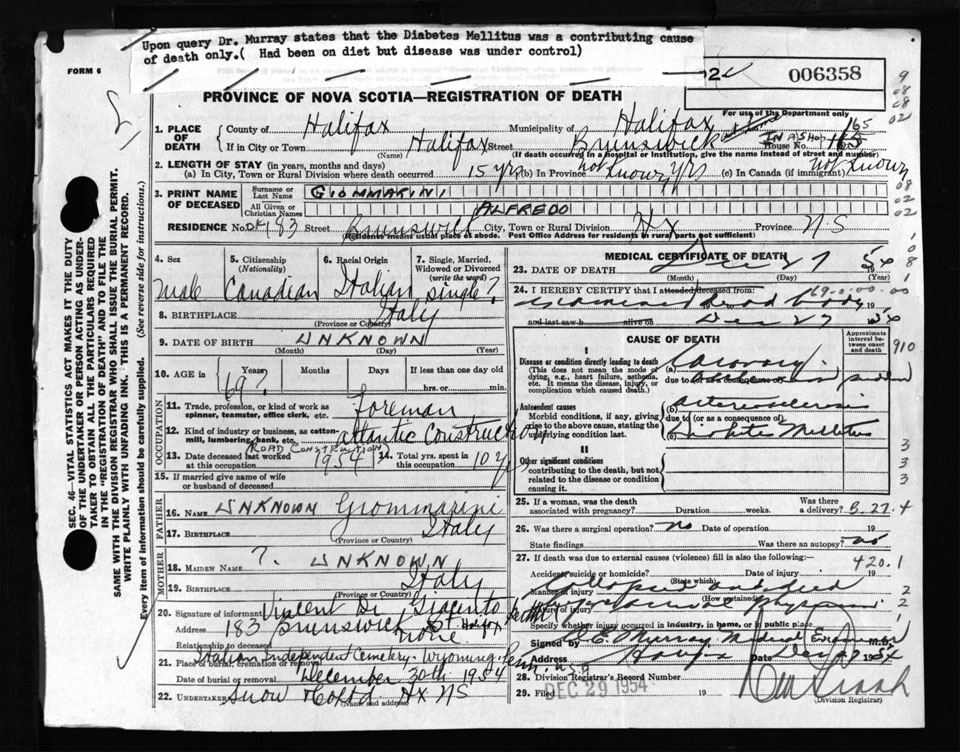 Upon query Dr. Murray states that the Diabetes Mellitus was a contributing cause
of death only.( Had been on diet but disease was under control)
FORM 6
006358
PROVINCE OF NOVA SCOTIA—REGISTRATION OF DEATH
For use of the Department only
1. PLACE OF DEATH
County of Halifax Municipality of Halifax
If in City or Town Halifax Street Brunswick House No. 165
(Name) (If death occurred in a hospital or institution, give the name instead of street and number)
IN A SHOP
2. LENGTH OF STAY (in years, months and days)
(a) In City, Town or Rural Division where death occurred 15 yrs (b) In Province not known yrs (c) In Canada (if immigrant) not known
3. PRINT NAME OF DECEASED
Surname or Last Name GIOMMARINI
All Given or Christian Names ALFREDO
RESIDENCE No. 183 Street Brunswick City, Town or Rural Division Hx Province NS
(Residence means usual place of abode. Post Office Address for residents in rural parts not sufficient)
4. Sex Male
5. Citizenship (Nationality) Canadian
6. Racial Origin Italian
7. Single, Married, Widowed or Divorced (write the word) single?
8. BIRTHPLACE Italy
(Province or Country)
9. DATE OF BIRTH UNKNOWN
(Month) (Day) (Year)
10. AGE in Years Months Days If less than one day old
69? hrs. or min.
OCCUPATION
11. Trade, profession, or kind of work as spinner, teamster, office clerk, etc. Foreman
12. Kind of industry or business, as cotton-mill, lumbering, bank, etc. Atlantic Construction
ROAD CONSTRUCTION
13. Date deceased last worked at this occupation 1954
14. Total yrs. spent in this occupation 10 yrs
15. If married give name of wife or husband of deceased
FATHER
16. NAME UNKNOWN Giommarini
17. BIRTHPLACE Italy
(Province or Country)
MOTHER
18. MAIDEN NAME ? UNKNOWN
19. BIRTHPLACE Italy
(Province or Country)
20. Signature of informant Vincent Di Giacinto
Address 183 Brunswick St Halifax
Relationship to deceased none
21. Place of burial, cremation or removal Italian Independent Cemetery - Wyoming, Penn. USA
Date of burial or removal December 30th 1954
22. UNDERTAKER Snow & Co Ltd. Hx NS
(Name and address)
MEDICAL CERTIFICATE OF DEATH
23. DATE OF DEATH Dec 27 54
(Month) (Day) (Year)
24. I HEREBY CERTIFY that I attended deceased from:
Examined dead body 19
and last saw h alive on Dec 27 54
CAUSE OF DEATH
Approximate interval between onset and death
I
Disease or condition directly leading to death
(This does not mean the mode of dying, e.g., heart failure, asthenia, etc. It means the disease, injury, or complication which caused death.)
(a) Coronary
due to (or as a consequence of) sudden
Antecedent causes
Morbid conditions, if any, giving rise to the above cause, stating the underlying condition last.
(b) Arteriosclerosis
due to (or as a consequence of)
(c) Diabetes Mellitus
II
Other significant conditions
contributing to the death, but not related to the disease or condition causing it.
25. If a woman, was the death associated with pregnancy? Duration weeks. Was there a delivery?
26. Was there a surgical operation? no Date of operation 19
State findings Was there an autopsy? no
27. If death was due to external causes (violence) fill in also the following:— 420.1
Accident, suicide or homicide? Date of injury 19
(State which)
Manner of injury Collapsed and died
(How sustained)
Nature of injury
Specify whether injury occurred in industry, in home, or in public place
Signed by D.E. Murray Medical Examiner M.D.
Address Halifax Date Dec 1954
28. Division Registrar's Record Number
29. Filed DEC 29 1954 19
(Division Registrar)
SEC. 46—VITAL STATISTICS ACT MAKES IT THE DUTY
OF THE UNDERTAKER OR PERSON ACTING AS UNDER-
TAKER TO OBTAIN ALL THE PARTICULARS REQUIRED
IN THE "REGISTRATION OF DEATH" AND TO FILE THE
SAME WITH THE DIVISION REGISTRAR WHO SHALL ISSUE THE BURIAL PERMIT.
WRITE PLAINLY WITH UNFADING INK. THIS IS A PERMANENT RECORD.
Every item of information should be carefully supplied. (See reverse side for instructions.)